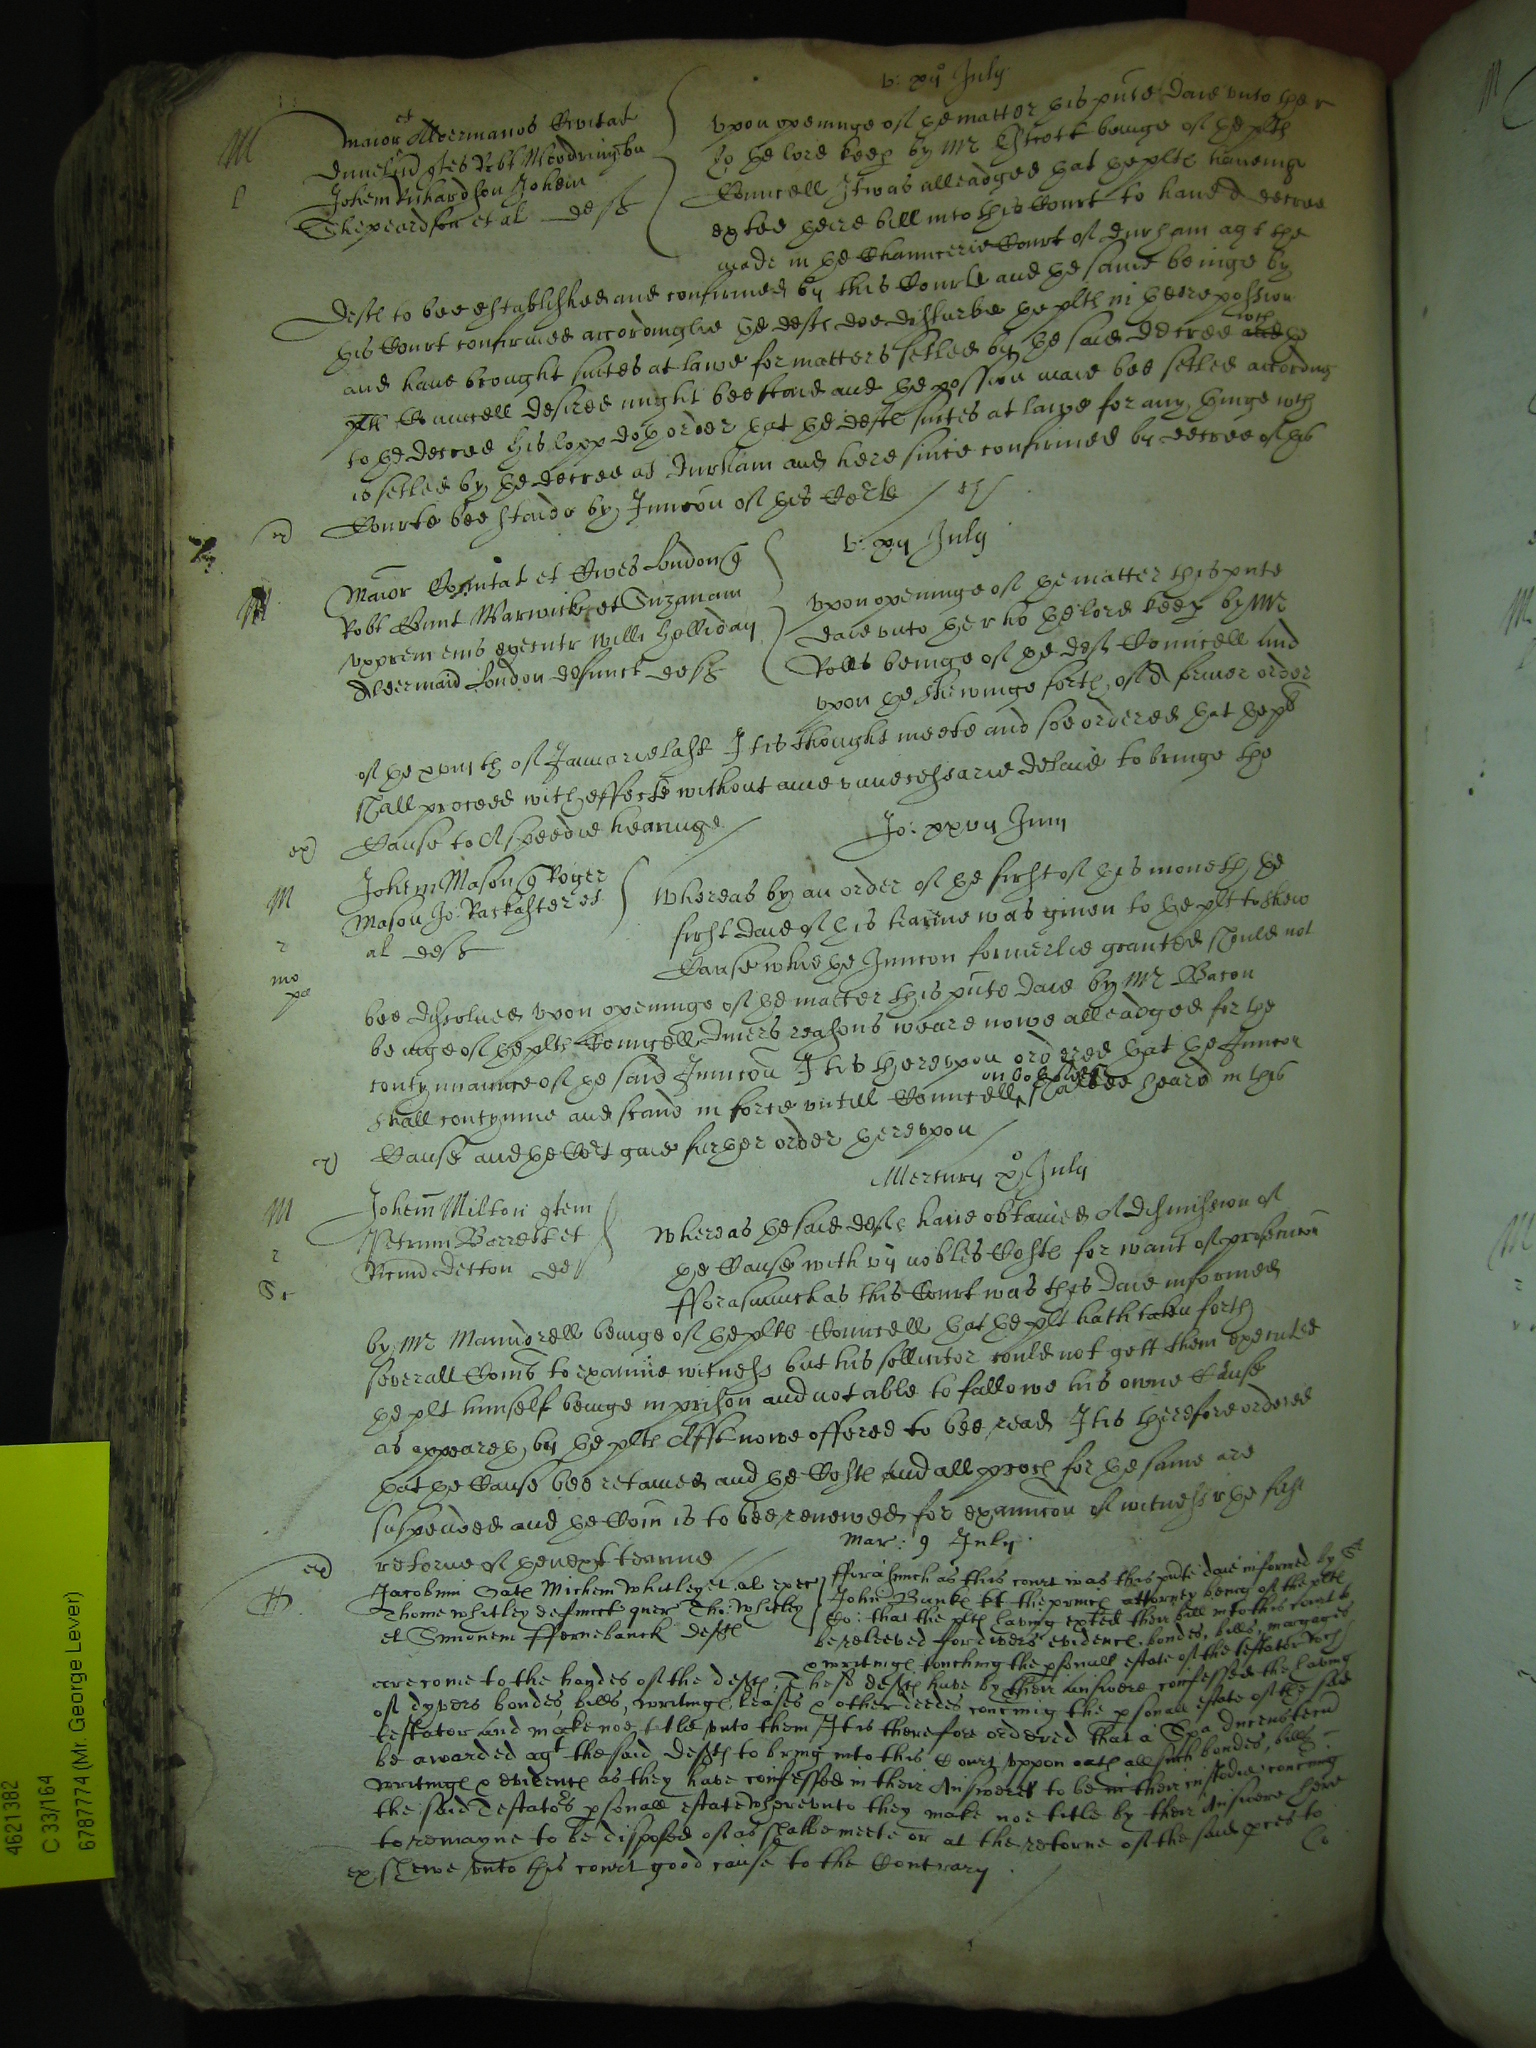 v: xiij July
M
Maior et Aldermanos Civitat
Dunelm quer Robt Woodrington
Johem Richardson Johem
Shepeardson et al deftes
Upon openinge of the matter this pnte daie unto the r
ho the lord keep by Mr Escott beinge of the plts
Councell It was alleadged that the plts haueinge
exhited there bill into this Court to haue a decree
made in the Chauncerie Court of Durham agt the
Deftes to bee established and confirmed by this Courte and the same beinge by
this Court confirmed accordinglie the deftes doe disturbe the plts in there possion
and haue brought suites at lawe for matters setled by the said decree wch the
plts Councell desired might bee staied and the possion maie bee setled according
to the decree his lopp doth order that the deftes suites at lawe for any thinge wch
is setled by the decree at Durham and here since confirmed by decree of this
Courte bee staide by Iniuncon of this Corte
v: xiij July
M
Maior Coïtat et Cives London q
Robt Comit Warwick et Suzanam
uxorem eius execut Willi Hollidaij
Aldermaid London defunct deftes
Upon openinge of the matter this pnte
daie unto the r ho the lord keep by Mr
Rolls beinge of the deftes Councell And
upon the shewinge forth of a former order
of the xxviijth of Januarie last It is thought meete and soe ordered that the plt
shall proceed with effecte without anie unnecessarie delaie to bringe the
Cause to a speedie hearinge
Jo: xxvij Junij
M
Johem Mason q Roger
Mason Jo: Rackaster et
al deftes
Whereas by an order of the first of this moneth the
first daie of this tearme was given to the plt to shew
Cause whie the Iniuncon formerlie granted should not
bee dissolued upon openinge of the matter this pnte daie by Mr Bacon
beinge of the plts Councell diuers reasons weare nowe alleadged for the
contynuaunce of the said Iniuncon It is therevpon ordered that the Iniuncon
shall contynue and stand in force untill Councell on bo sides shalbee heard in this
Cause and the Cort giue further order therevpon
Mercurij xº July
M
Johem Milton qtem
Petrum Barrett et
Ricum Detton def
Whereas the said deftes haue obtained a dismission of
the Cause with vij nobles Costes for want of prosecucon
fforasmuch as this Court was this daie informed
by Mr Maundrell beinge of the plts Councell that the plt hath taken forth
severall Comns to examine witness but his sollicitor could not gett them executed
the plt himself beinge in prison and not able to followe his owne Cause
as appeareth by the plts Afft nowe offered to bee read It is therefore ordered
that the Cause bee retained and the Costes and all proces for the same are
suspended and the Comn is to bee renewed for exaiacon of witness r the first
retorne of the next tearme
Mar: 9 July
Jacobum Michem Whitley et al exec
Thome Whitley defunct quer Tho: Whitley
et Simonem ffernebanck deftes
fforasmuch as this court was this pnte daie informed by Sr
John Bankes kt the princes attorney being of the plts
Co: that the plts having exhited their bill into this court to
be releeved for divers evidences, bondes, bills, morgages
& writinges touching the psonall estate of the testator wch
are come to the handes of the deftes, The sd deftes have by their Answere confessed the having
of dyvers bondes, bills, writinges, leases & other deedes concning the psonall estate of the said
testator and make noe title unto them It is therefore ordered that a Spa ducenstecu
be awarded agt the said deftes to bring into this Court uppon oath all such bondes, bills
writinges & evidences as they have confessed in their Answeres to be in their custodie concning
the said testators psonall estate whereunto they make noe title by their Answere here
to remayne to be disposed of as shalbe meete or at the retorne of the said proces to
shewe unto this court good cause to the Contrary
4621382
C 33/164
6787774 (Mr. George Lever)